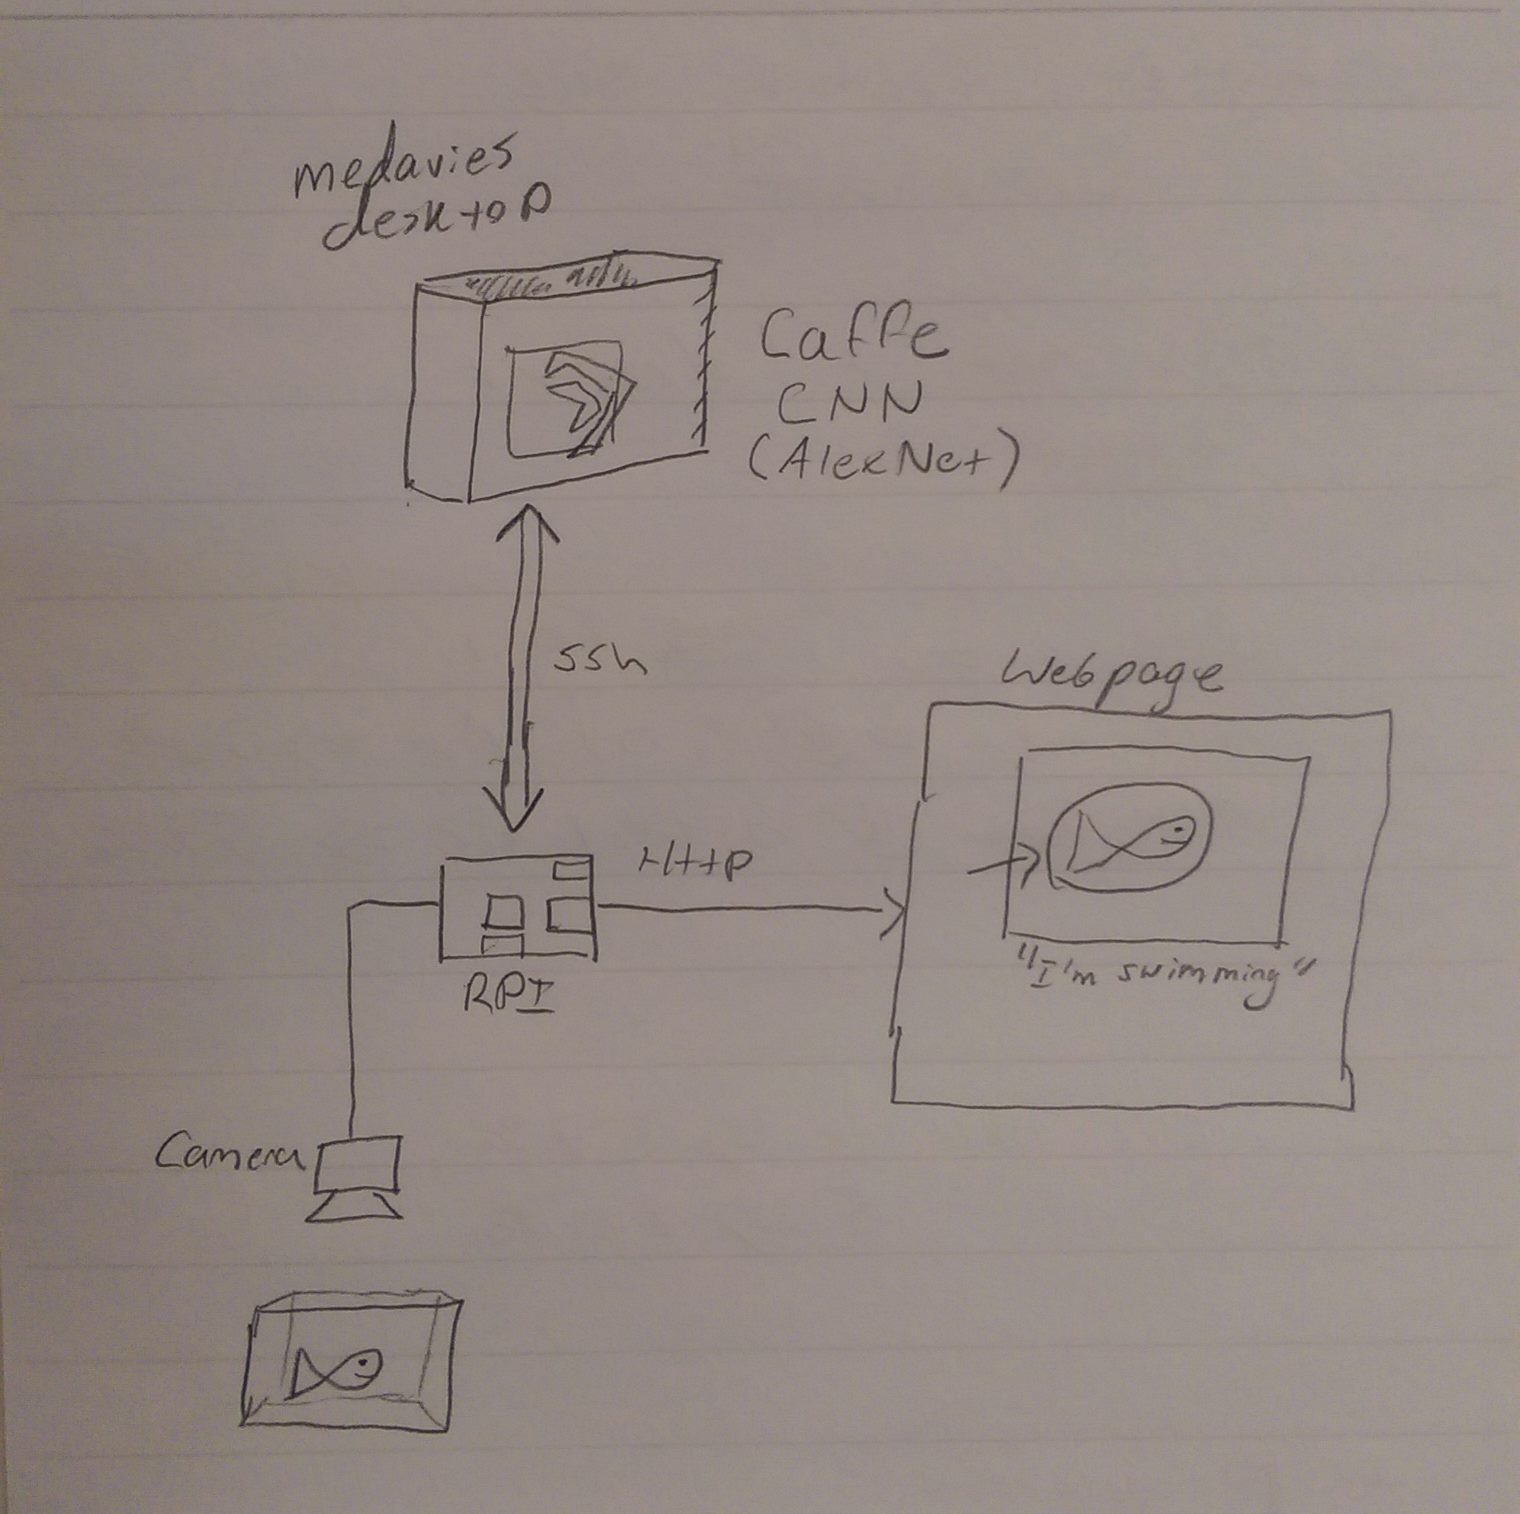 medavies
desktop
Caffe
CNN
(AlexNet)
ssh
Webpage
Http
"I'm swimming"
RPI
Camera